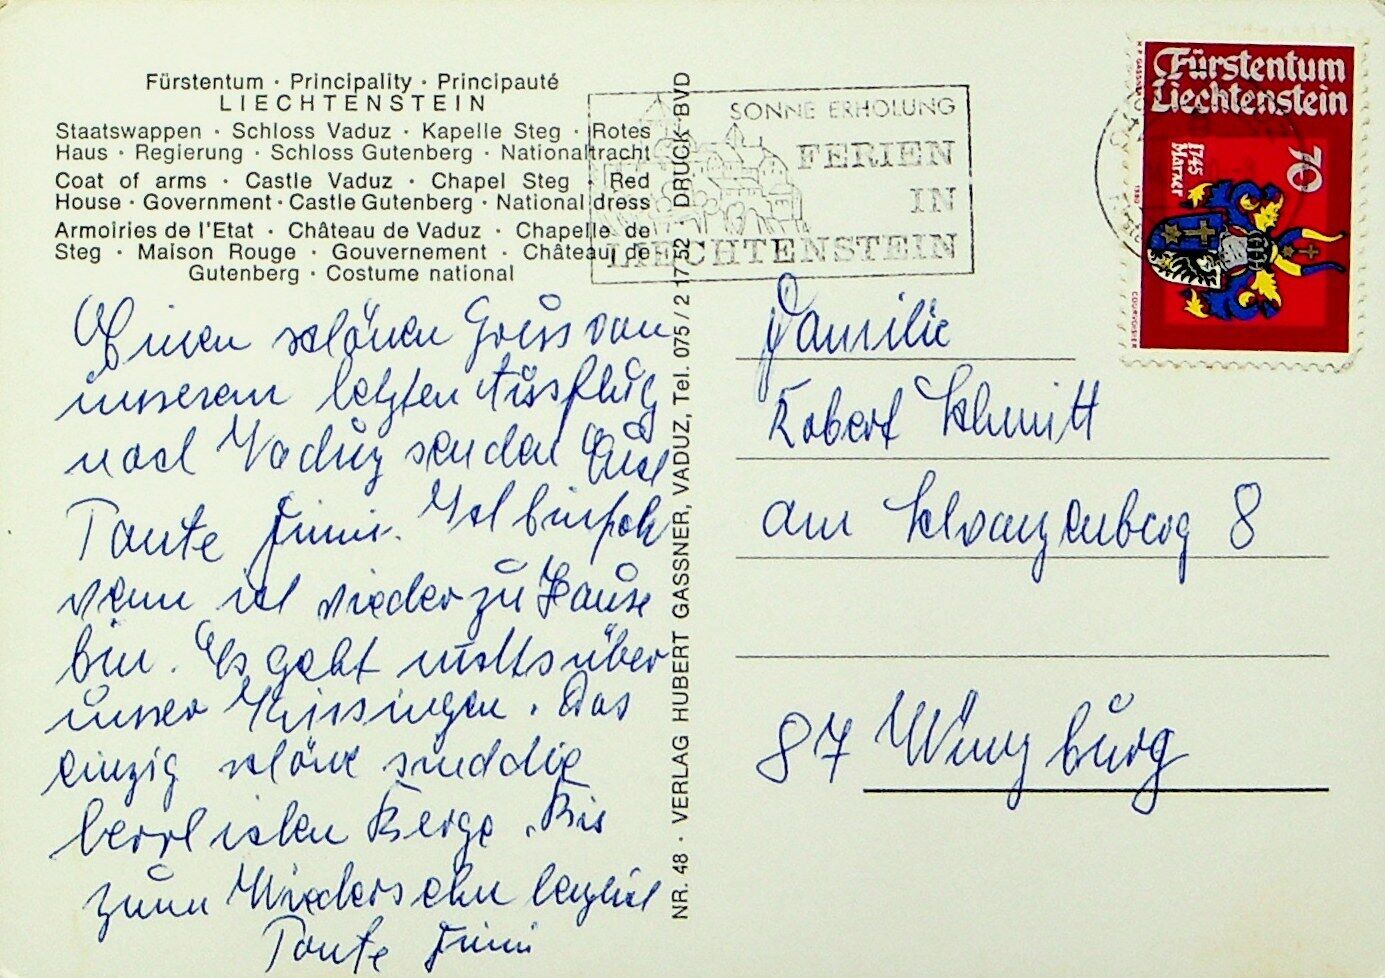 Fürstentum · Principality · Principauté
LIECHTENSTEIN
Staatswappen · Schloss Vaduz · Kapelle Steg · Rotes
Haus · Regierung · Schloss Gutenberg · Nationaltracht
Coat of arms · Castle Vaduz · Chapel Steg · Red
House · Government · Castle Gutenberg · National dress
Armoiries de l'Etat · Château de Vaduz · Chapelle de
Steg · Maison Rouge · Gouvernement · Château de
Gutenberg · Costume national
Einen schönen Gruss von
unserem letzten Ausflug
nach Vaduz sendet Euch
Tante Fini. Ich bin froh
wenn ich wieder zu Hause
bin. Es geht nichts über
unser Kissingen. Das
einzig schöne sind die
herrlichen Berge. Bis
zum Wiedersehn herzlich
Tante Fini
NR. 48 · VERLAG HUBERT GASSNER, VADUZ, Tel. 075 / 2 17 52 · DRUCK BVD
SONNE ERHOLUNG
FERIEN
IN
LIECHTENSTEIN
Fürstentum
Liechtenstein
70
1745
Marxer
H.P. GASSNER
1980
COURVOISIER
Familie
Robert Schmitt
am Schwanzenberg 8
87 Würzburg